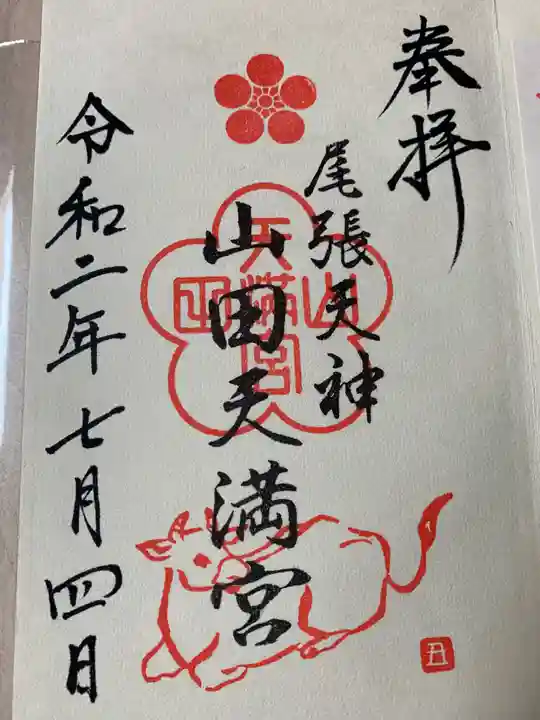 奉拝
尾張天神
山田天満宮
令和二年七月四日
山田
天満宮
丑